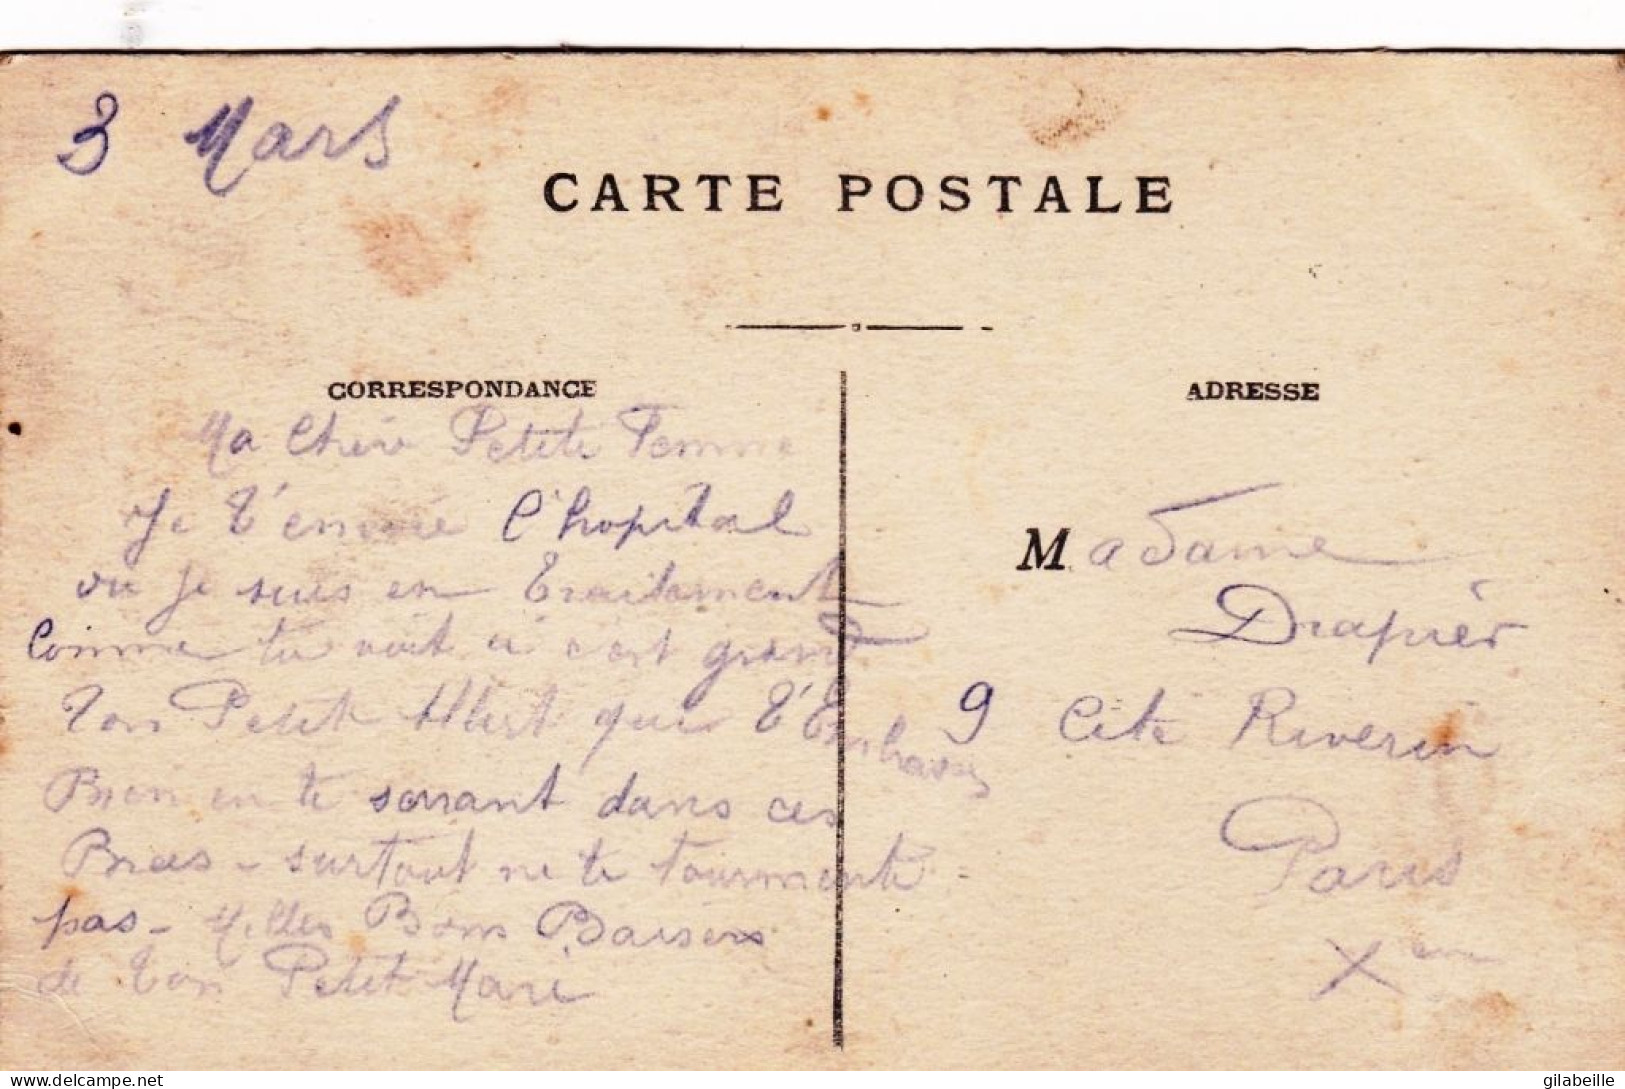 3 Mars
CARTE POSTALE
CORRESPONDANCE
Ma Chère Petite Femme
Je t'envoie l'hopital
ou je suis en Traitement
Comme tu voit c'est grand
Ton Petit Albert que t'Embrasse
Bien en te serrant dans ces
Bras - surtout ne te tourmente
pas - Milles Bons Baisers
de ton Petit Mari
ADRESSE
Madame
Drapier
9 Cité Riverin
Paris
Xem
delcampe.net
gilabeille